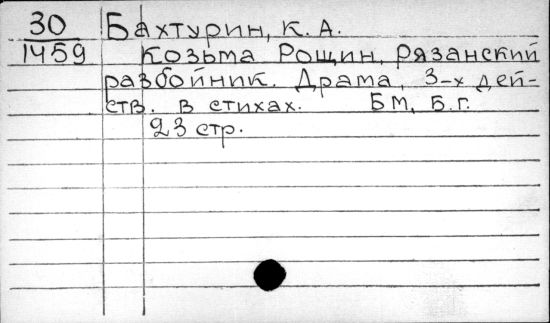 30 Бахтурин, К. А.
1459 Козьма Рощин, рязанский
разбойник. Драма, 3-х дей-
ств. в стихах. БМ, Б.г.
23 стр.